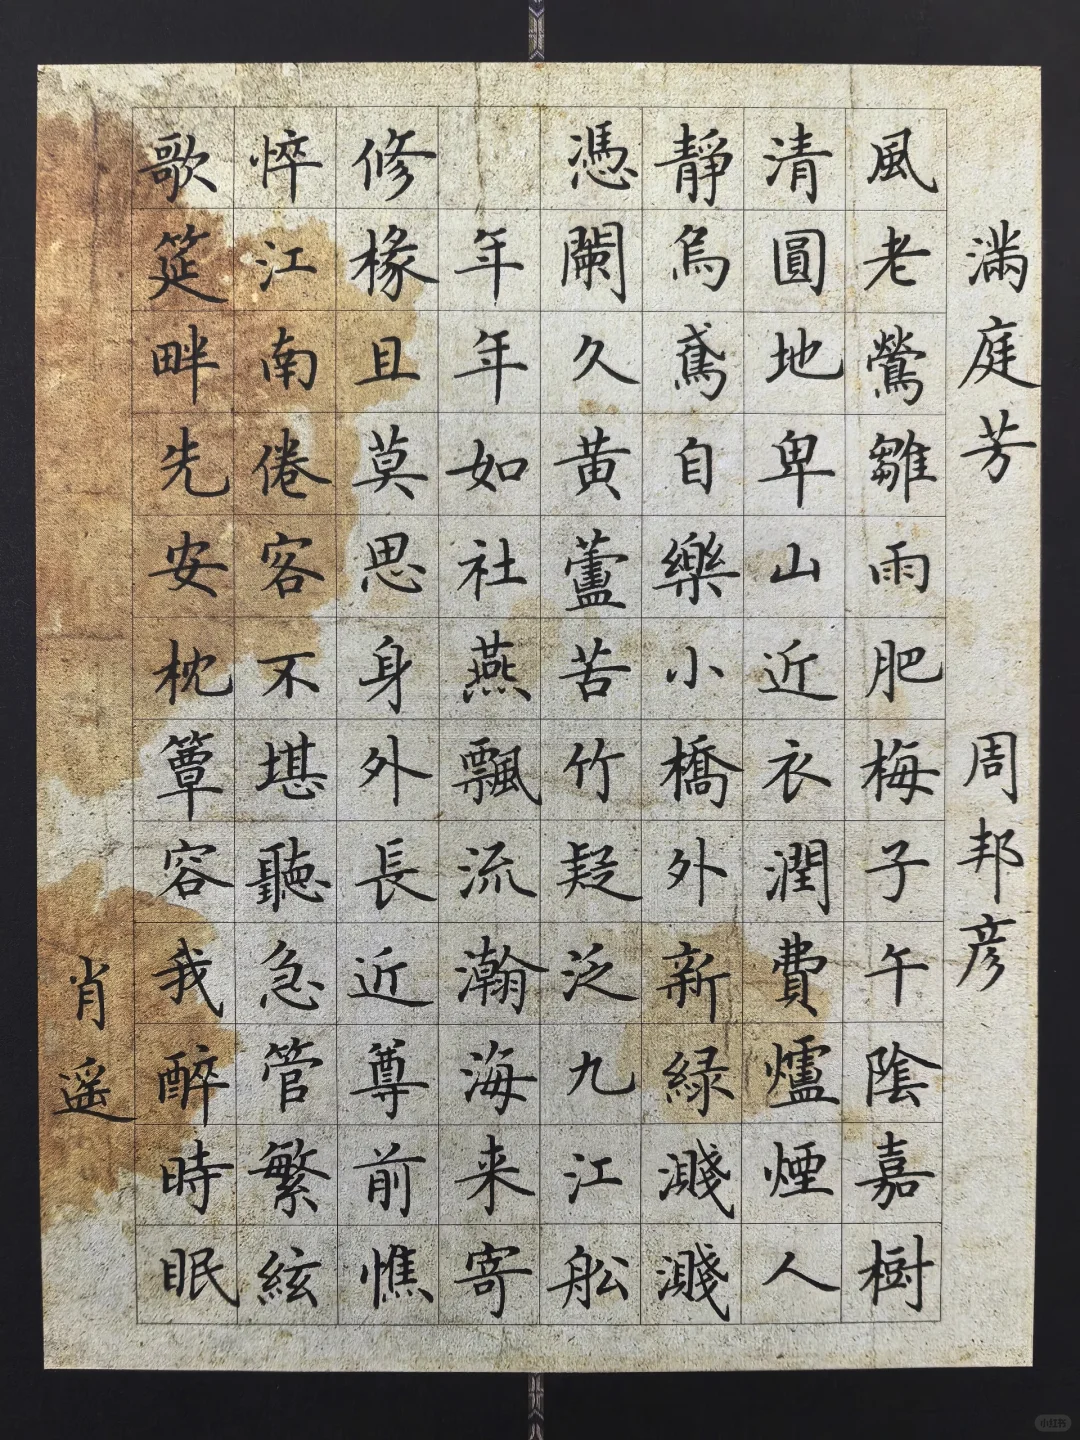 滿庭芳 周邦彦
風老鶯雛雨肥梅子午陰嘉樹
清圓地卑山近衣潤費爐煙人
靜烏鳶自樂小橋外新緑濺濺
憑闌久黄蘆苦竹疑泛九江舩
年年如社燕飄流瀚海来寄
修椽且莫思身外長近尊前憔
悴江南倦客不堪聽急管繁絃
歌筵畔先安枕簟容我醉時眠
肖遥
小红书